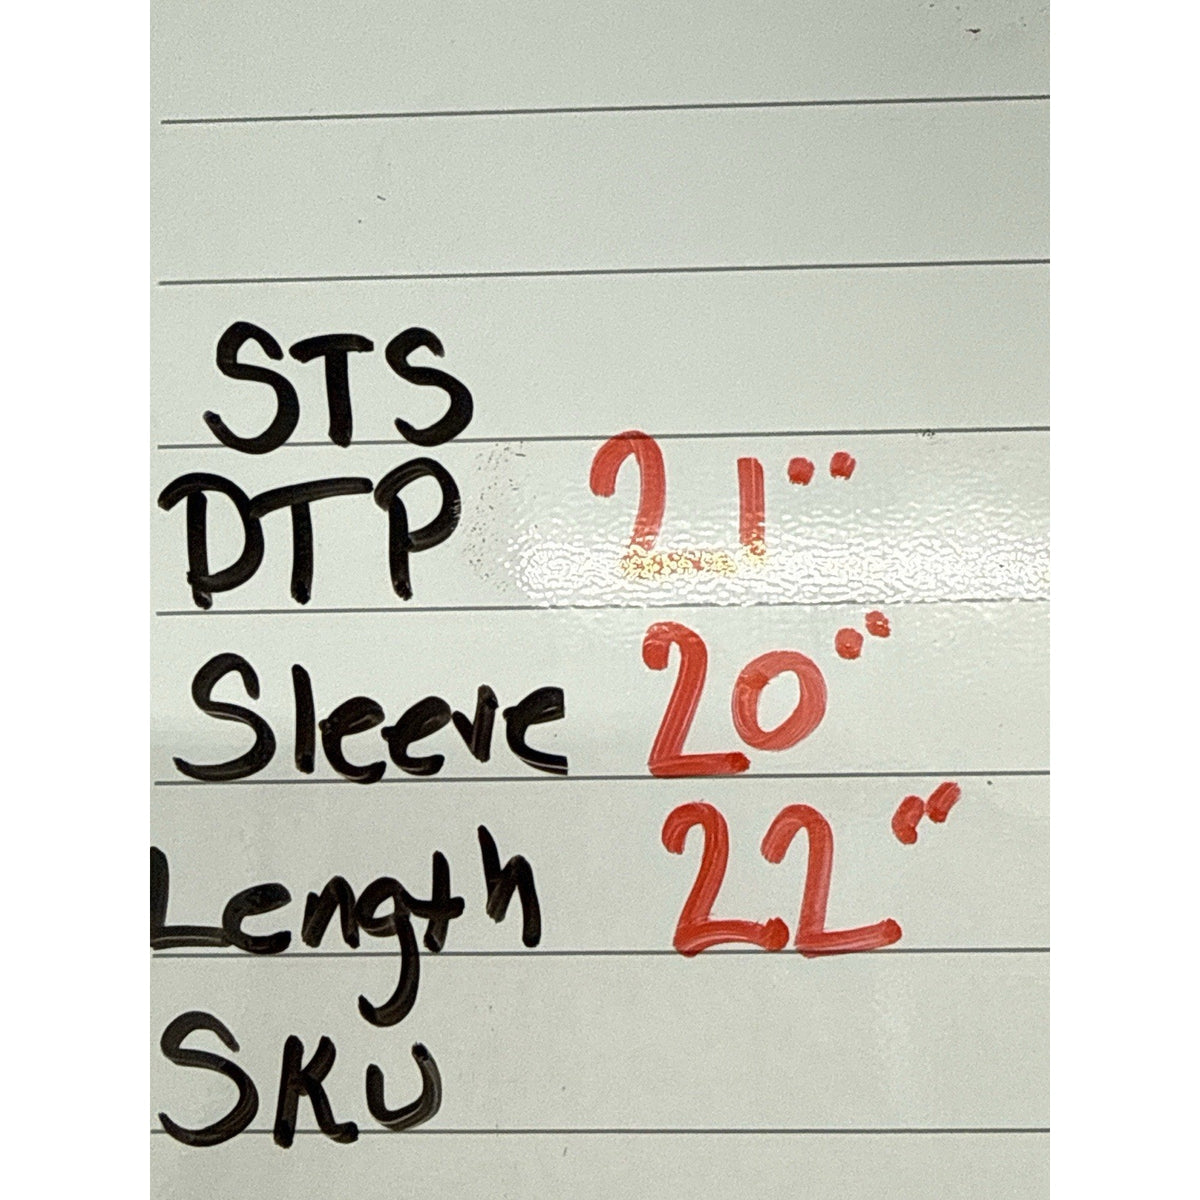 STS
DTP 21"
Sleeve 20"
Length 22"
SKU